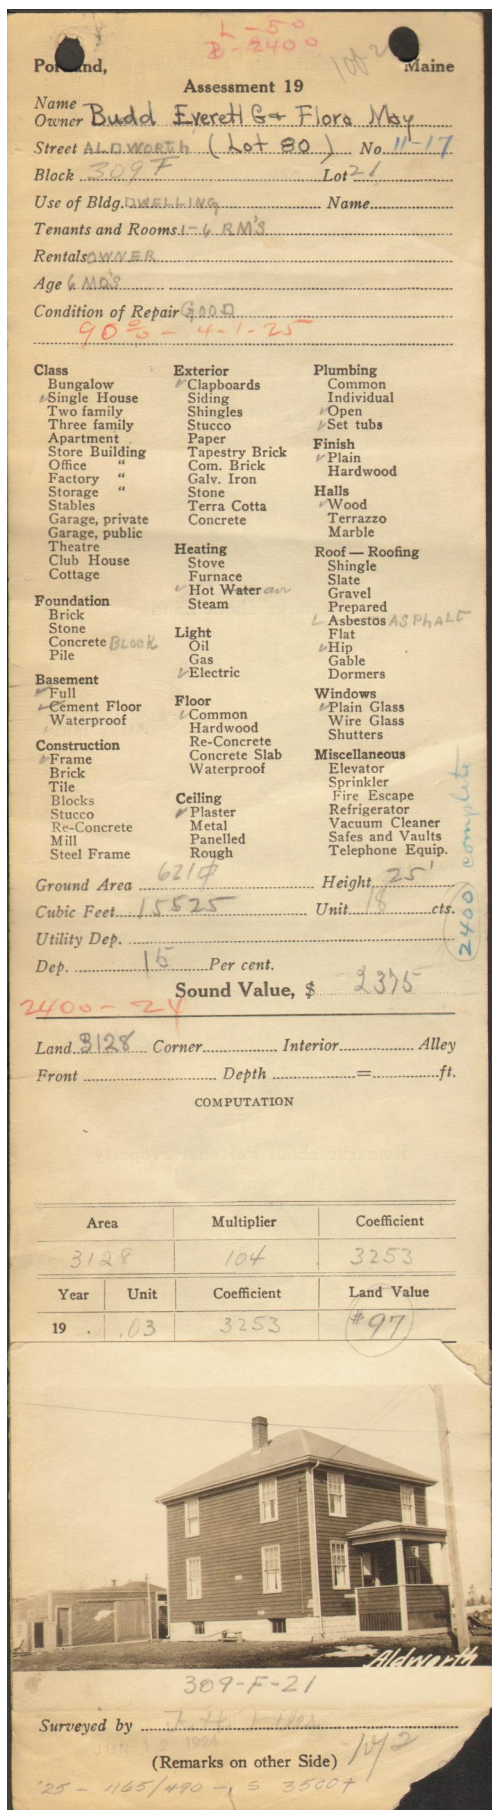 L-50
B-2400
Portland, Maine
Assessment 19
Name Owner Budd Everett G & Flora May
Street ALDWORTH (Lot 80) No. 11-17
Block 309 F Lot 21
Use of Bldg. DWELLING Name
Tenants and Rooms. 1-6 RM'S
Rentals OWNER
Age 6 MO'S
Condition of Repair GOOD
90% - 4-1-25
Class
Bungalow
✓Single House
Two family
Three family
Apartment "
Store Building
Office "
Factory "
Storage "
Stables
Garage, private
Garage, public
Theatre
Club House
Cottage
Foundation
Brick
Stone
Concrete BLOCK
Pile
Basement
✓Full
✓Cement Floor
Waterproof
Construction
✓Frame
Brick
Tile
Blocks
Stucco
Re-Concrete
Mill
Steel Frame
Exterior
✓Clapboards
Siding
Shingles
Stucco
Paper
Tapestry Brick
Com. Brick
Galv. Iron
Stone
Terra Cotta
Concrete
Heating
Stove
Furnace
✓Hot Water air
Steam
Light
Oil
Gas
✓Electric
Floor
✓Common
Hardwood
Re-Concrete
Concrete Slab
Waterproof
Ceiling
✓Plaster
Metal
Panelled
Rough
Plumbing
Common
Individual
✓Open
✓Set tubs
Finish
✓Plain
Hardwood
Halls
✓Wood
Terrazzo
Marble
Roof — Roofing
Shingle
Slate
Gravel
Prepared
✓Asbestos ASPHALT
Flat
✓Hip
Gable
Dormers
Windows
✓Plain Glass
Wire Glass
Shutters
Miscellaneous
Elevator
Sprinkler
Fire Escape
Refrigerator
Vacuum Cleaner
Safes and Vaults
Telephone Equip.
2400 complete
Ground Area 621 Height 25'
Cubic Feet 15525 Unit 18 cts.
Utility Dep.
Dep. 15 Per cent.
Sound Value, $ 2375
2400-24
Land 3128 Corner Interior Alley
Front Depth = ft.
COMPUTATION
Area Multiplier Coefficient
3128 104 3253
Year Unit Coefficient Land Value
19 .03 3253 #97
Aldworth
309-F-21
Surveyed by
JUN 12 1924
(Remarks on other Side)
'25 - 1165/490 - S 3500+